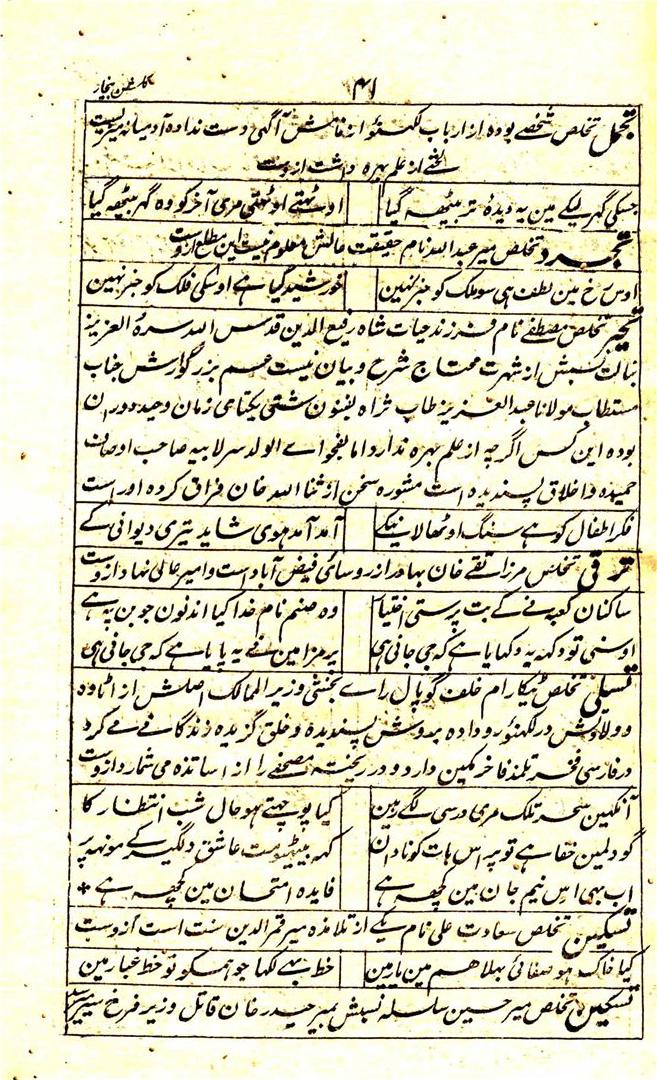 ۴۱
گلشن بیخار
تجمل تخلص شخصے بوده از ارباب لکهنؤ از نامش آگہی دست نداده آدمیانہ میزیست
لختے از علم بہره داشت ازوست
جسکی گهر لیکے مین یہ دیدهٔ تر بیٹهہ گیا اوٹهتے اوٹهتی مری آخر کو وه گهر بیٹهہ گیا
تجرد تخلص میر عبدالله نام حقیقت حالش معلوم نیست این مطلع ازوست
اوس رخ مین لطف ہی سو ملک کو خبر نہین خورشید کیا ہے اوسکی فلک کو خبر نہین
تحیر تخلص مصطفے نام فرزند حیات شاه رفیع الدین قدس الله سرهٔ العزیز
نسبش از شہرت محتاج شرح و بیان نیست عم بزرگوارش جناب
مستطاب مولانا عبدالعزیز طاب ثراه بفنون شتی یکتای زمان وحید دوران
بوده این کس اگرچہ از علم بہره ندارد اما بفحواے الولد سر لابیہ صاحب اوصاف
حمیده و اخلاق پسندیده است مشوره سخن از ثناالله خان فراق کرده او راست
فکر اطفال کو ہے سنگ اوٹها لا نیکے آمد آمد ہوی شاید تیری دیوانی کے
ترقی تخلص مرزا تقے خان بہادر از روسای فیض آباد است و امیر عالی نہاد ازوست
ساکنان کعبہ نے کے بت پرستی اختیار وه صنم نام خدا کیا اندنون جوبن پہ ہے
اوسنی تو دکهہ یہ دکهایا ہے کہ جی جانی ہی پر مزا مین نے یہ پایا ہے کہ جی جانی ہی
تسلی تخلص ٹیکا رام خلف گوپال راے بخشی وزیر الممالک اصلش از اٹاوه
و ولادتش در لکهنؤ رو داده بروش پسندیده و خلق گزیده زندگانے مے کرد
در فارسی فخر تلمذ فاخر مکین دارد و در ریختہ مصحفے را از اساتذه می شمارد ازوست
آنکهین سحر تلک مری در سی لگے رہین کیا پوچهتے ہو حال شب انتظار کا
گو دلمین خفا ہے تو پہ اس بات کو نادان کہہ بیٹهیو مت عاشق دلگیر کے مونہہ پر
اب بهی اس نیم جان مین کچهہ ہے فایده امتحان مین کچهہ ہے *
تسکین تخلص سعادت علی نام یکے از تلامذه میر قمرالدین منت است ازوست
کیا خاک ہو صفائی بهلا ہم مین یار مین خط بهے لکها جو ہمکو تو خط غبار مین
تسکین تخلص میر حسین سلسلہ نسبش بمیر حیدر خان قاتل وزیر فرخ سیر